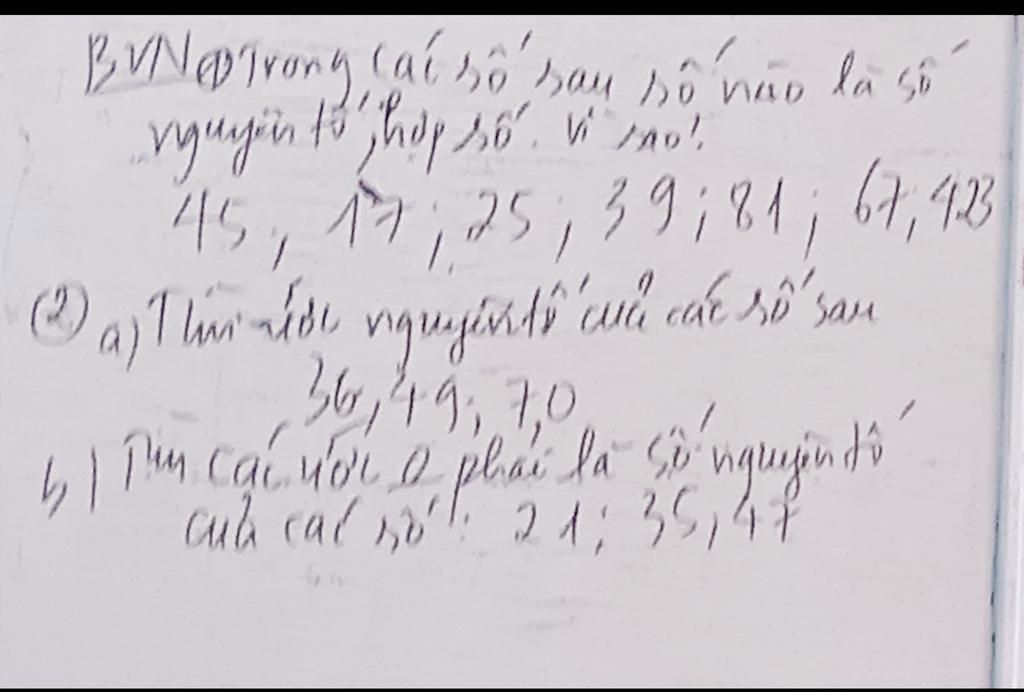 BVN ① Trong các số sau số nào là số
nguyên tố, hợp số. Vì sao?
45, 17; 25; 39; 81; 67, 423
② a) Tìm ước nguyên tố của các số sau
36, 49, 70
b) Tìm các ước 0 phải là số nguyên tố
của các số: 21; 35, 47